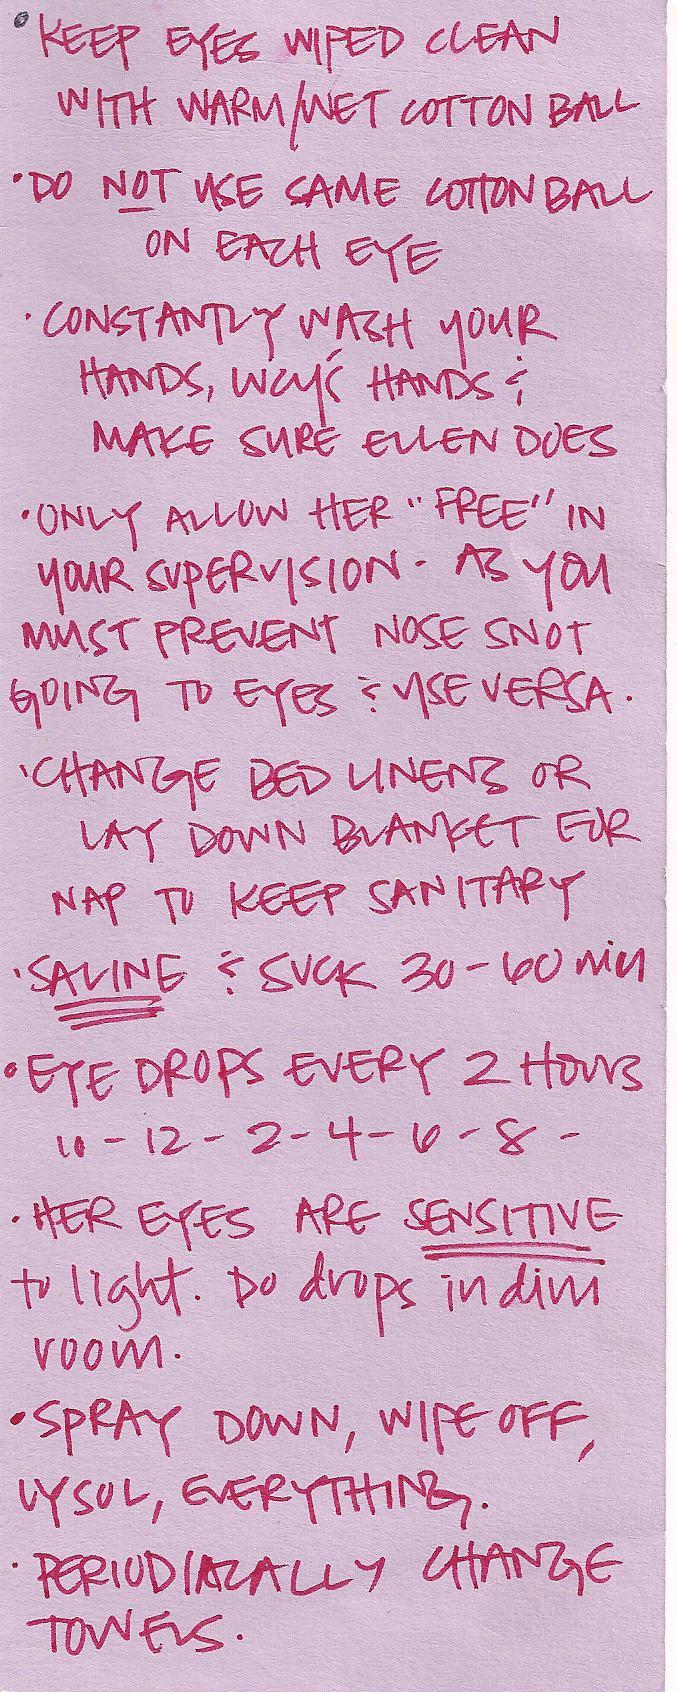 • KEEP EYES WIPED CLEAN
WITH WARM/WET COTTON BALL
• DO NOT USE SAME COTTON BALL
ON EACH EYE
• CONSTANTLY WASH YOUR
HANDS, HANDS &
MAKE SURE ELLEN DOES
• ONLY ALLOW HER "FREE" IN
YOUR SUPERVISION - AS YOU
MUST PREVENT NOSE SNOT
GOING TO EYES & VISE VERSA.
• CHANGE BED LINENS OR
LAY DOWN BLANKET FOR
NAP TO KEEP SANITARY
• SALINE & SUCK 30-60 min
• EYE DROPS EVERY 2 HOURS
10 - 12 - 2 - 4 - 6 - 8 -
• HER EYES ARE SENSITIVE
to light. Do drops in dim
room.
• SPRAY DOWN, WIPE OFF,
LYSOL, EVERYTHING.
• PERIODICALLY CHANGE
TOWELS.